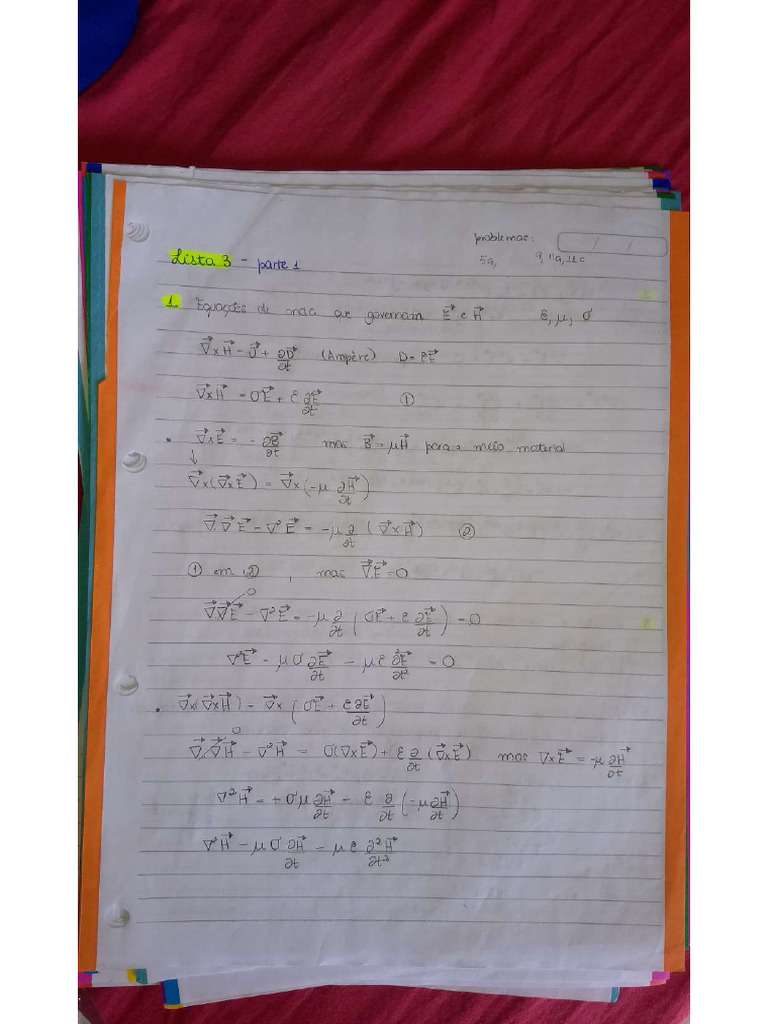 problemas:
/ /
Lista 3 - parte 1
5a, 9, 11a, 11c
1 Equações de onda que governam E⃗ e H⃗ ε, μ, σ
∇⃗×H⃗ = J⃗ + ∂D⃗/∂t (Ampère) D = εE⃗
∇⃗×H⃗ = σE⃗ + ε ∂E⃗/∂t ①
• ∇⃗×E⃗ = - ∂B⃗/∂t mas B⃗ = μH⃗ para o meio material
↓
∇⃗×(∇⃗×E⃗) = ∇⃗×(-μ ∂H⃗/∂t)
∇⃗.∇⃗E⃗ - ∇²E⃗ = -μ ∂/∂t (∇⃗×H⃗) ②
① em ②, mas ∇⃗.E⃗ = 0
0
∇⃗.∇⃗E⃗ - ∇²E⃗ = -μ ∂/∂t (σE⃗ + ε ∂E⃗/∂t) = 0
∇²E⃗ - μσ ∂E⃗/∂t - με ∂²E⃗/∂t² = 0
• ∇⃗×(∇⃗×H⃗) = ∇⃗×(σE⃗ + ε ∂E⃗/∂t)
0
∇⃗.∇⃗H⃗ - ∇²H⃗ = σ(∇×E⃗) + ε ∂/∂t (∇⃗×E⃗) mas ∇×E⃗ = -μ ∂H⃗/∂t
∇²H⃗ = + σμ ∂H⃗/∂t - ε ∂/∂t (-μ ∂H⃗/∂t)
∇²H⃗ - μσ ∂H⃗/∂t - με ∂²H⃗/∂t²